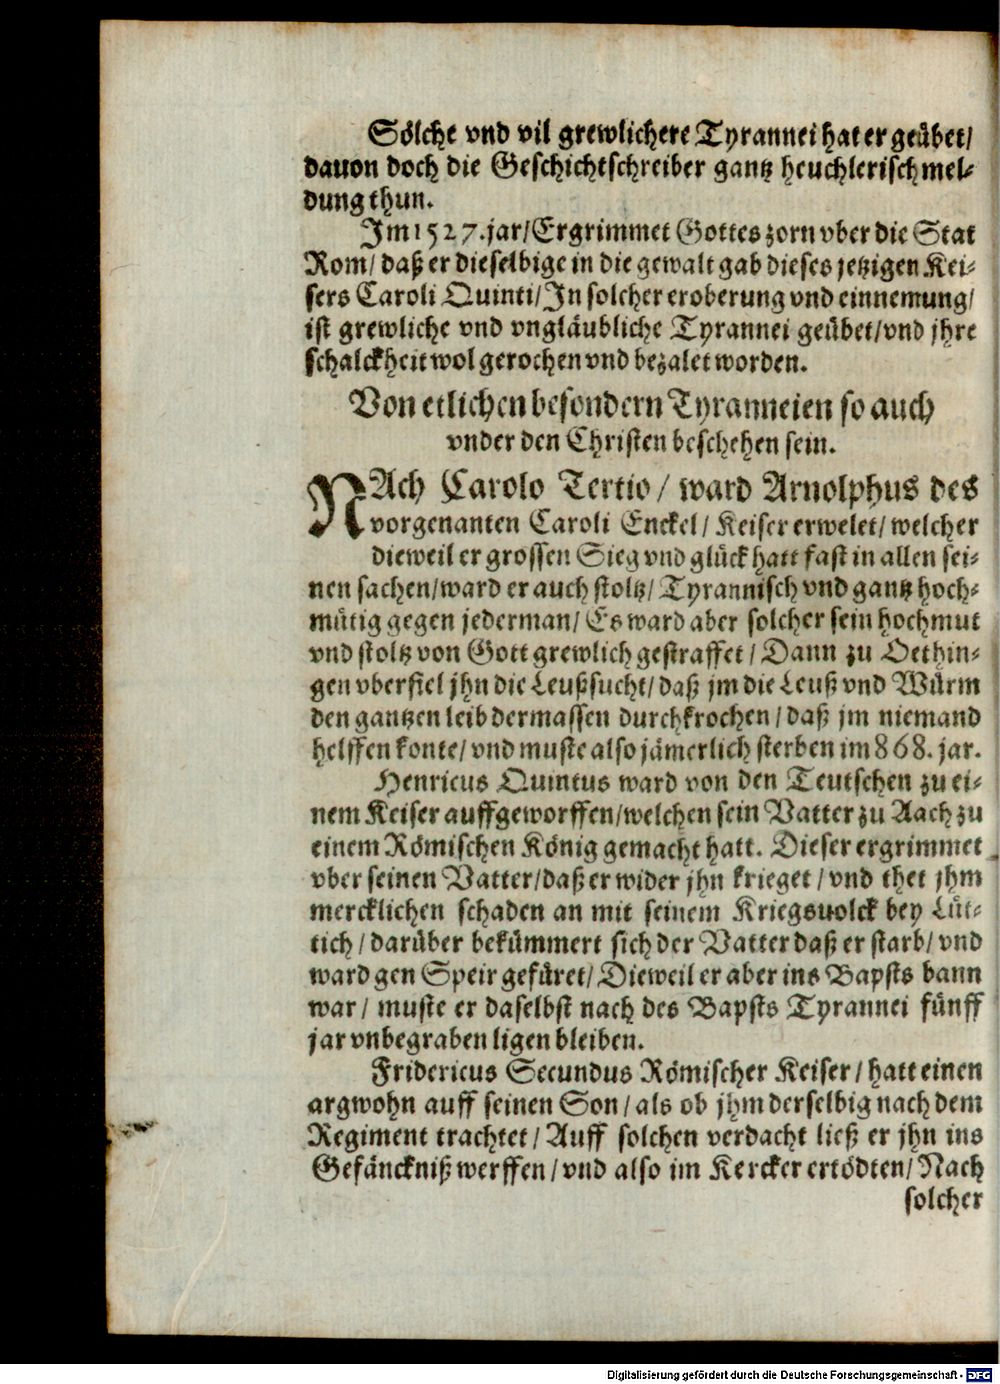 Sölche vnd vil grewlichere Tyrannei hat er geübet/
dauon doch die Geschichtschreiber gantz heuchlerisch mel-
dung thun.
Im 1527. jar/ Ergrimmet Gottes zorn vber die Stat
Rom/ daß er dieselbige in die gewalt gab dieses jetzigen Kei-
sers Caroli Quinti/ In solcher eroberung vnd einnemung/
ist grewliche vnd vngläubliche Tyrannei geübet/ vnd jhre
schalckheit wol gerochen vnd bezalet worden.
Von etlichen besondern Tyranneien so auch
vnder den Christen beschehen sein.
NAch Carolo Tertio/ ward Arnolphus des
vorgenanten Caroli Enckel/ Keiser erwelet/ welcher
dieweil er grossen Sieg vnd glück hatt fast in allen sei-
nen sachen/ ward er auch stoltz/ Tyrannisch vnd gantz hoch-
mütig gegen jederman/ Es ward aber solcher sein hochmut
vnd stoltz von Gott grewlich gestraffet/ Dann zu Oethin-
gen vberfiel jhn die Leußsucht/ daß jm die Leuß vnd Würm
den gantzen leib dermassen durchkrochen/ daß jm niemand
helffen konte/ vnd muste also jämerlich sterben im 868. jar.
Henricus Quintus ward von den Teutschen zu ei-
nem Keiser auffgeworffen/ welchen sein Vatter zu Aach zu
einem Römischen König gemacht hatt. Dieser ergrimmet
vber seinen Vatter/ daß er wider jhn krieget/ vnd thet jhm
mercklichen schaden an mit seinem Kriegsuolck bey Lüt-
tich/ darüber bekümmert sich der Vatter daß er starb/ vnd
ward gen Speir gefüret/ Dieweil er aber ins Bapsts bann
war/ muste er daselbst nach des Bapsts Tyrannei fünff
jar vnbegraben ligen bleiben.
Fridericus Secundus Römischer Keiser/ hatt einen
argwohn auff seinen Son/ als ob jhm derselbig nach dem
Regiment trachtet/ Auff solchen verdacht ließ er jhn ins
Gefänckniß werffen/ vnd also im Kercker ertödten/ Nach
solcher
Digitalisierung gefördert durch die Deutsche Forschungsgemeinschaft - DFG